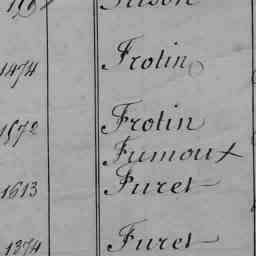 1474 Frotin
1872 Frotin
Fumoux
1613 Furet
1374 Furet